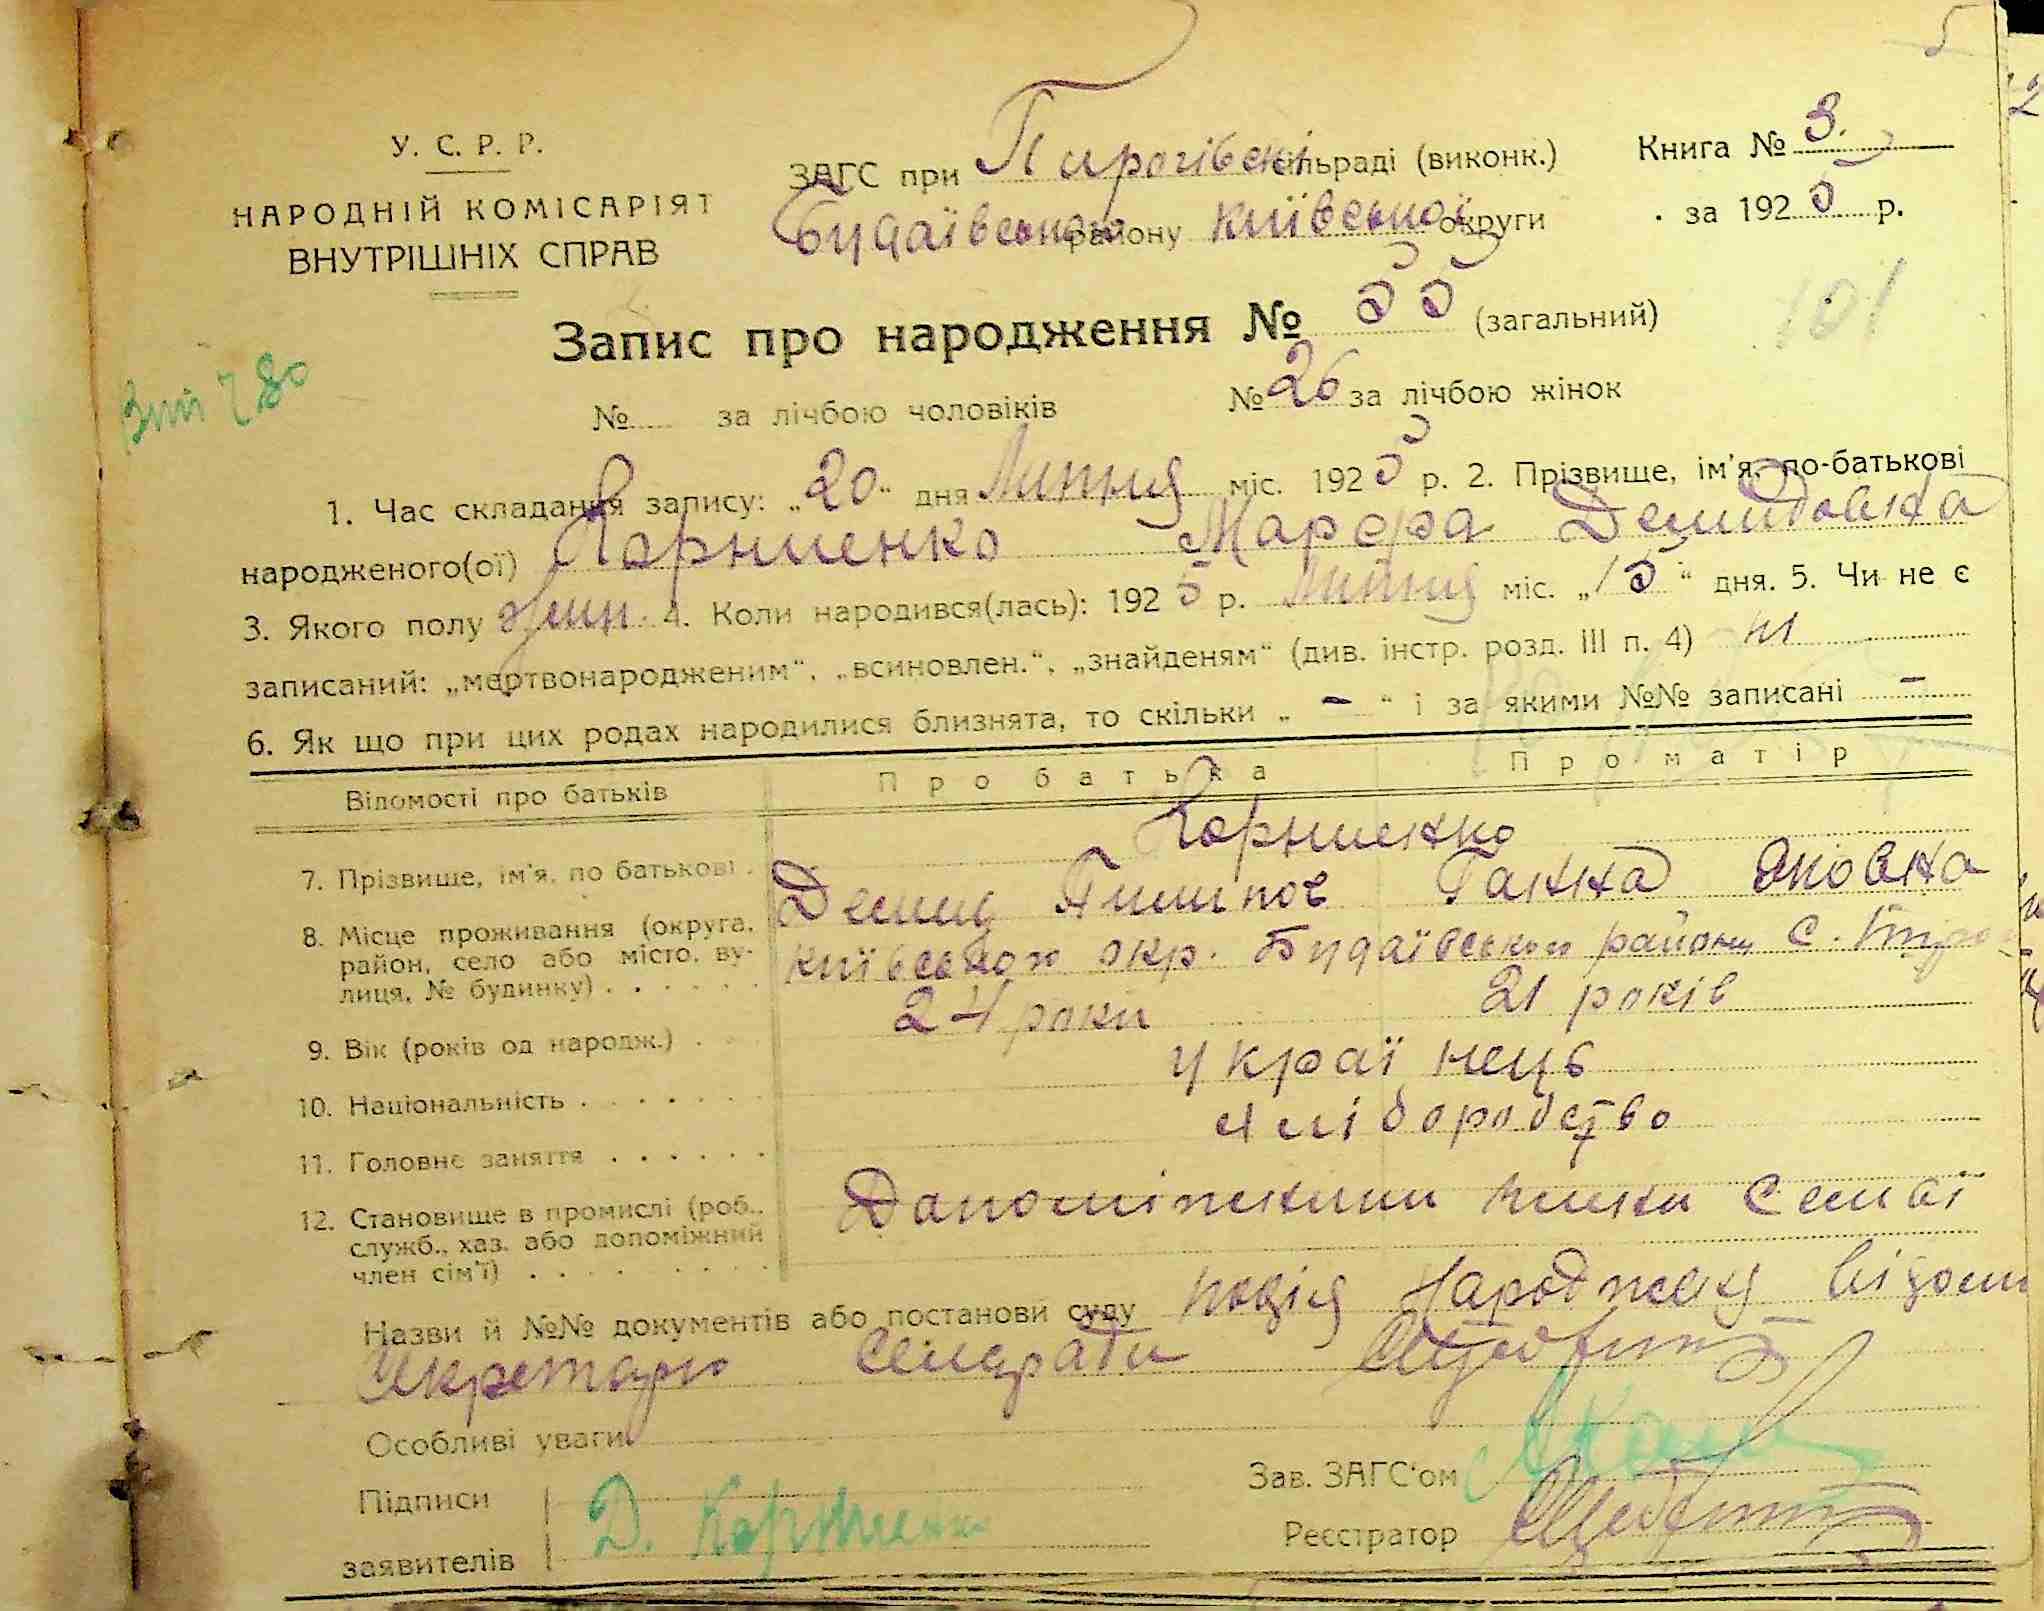 5
У. С. Р. Р.
НАРОДНІЙ КОМІСАРІЯТ
ВНУТРІШНІХ СПРАВ
ЗАГС при Пирогівскі сільраді (виконк.)
Будаївського району Київської округи
Книга № 3.
за 1925 р.
Запис про народження № 55 (загальний)
101
№ за лічбою чоловіків № 26 за лічбою жінок
1. Час складання запису: „20" дня Липня міс. 1925 р. 2. Прізвище, ім'я, по-батькові
народженого(ої) Корниенко Марфа Демидовна
3. Якого полу жин. 4. Коли народився(лась): 1925 р. Липня міс. „15" дня. 5. Чи не є
записаний: „мертвонародженим", „всиновлен.", „знайденям" (див. інстр. розд. III п. 4) ні
6. Як що при цих родах народилися близнята, то скільки „ - " і за якими №№ записані -
Відомості про батьків Про батька Про матір
Корниенко
7. Прізвище, ім'я, по батькові . Демид Пилипов Ганна Яковна
8. Місце проживання (округа, район, село або місто, вулиця, № будинку) . . . . . . Київської окр. Будаївського району с.
9. Вік (років од народж.) . 24 роки 21 років
10. Національність . . . . . . . українець
11. Головне заняття . . . . . . хліборобство
12. Становище в промислі (роб., служб., хаз. або допоміжний член сім'ї) . . . . . . . . Допоміжними члени семьі
Назви й №№ документів або постанови суду подія народження відом
секретарю сільради
Особливі уваги
Зав. ЗАГС'ом
Підписи
заявителів Д. Корниенко
Реєстратор